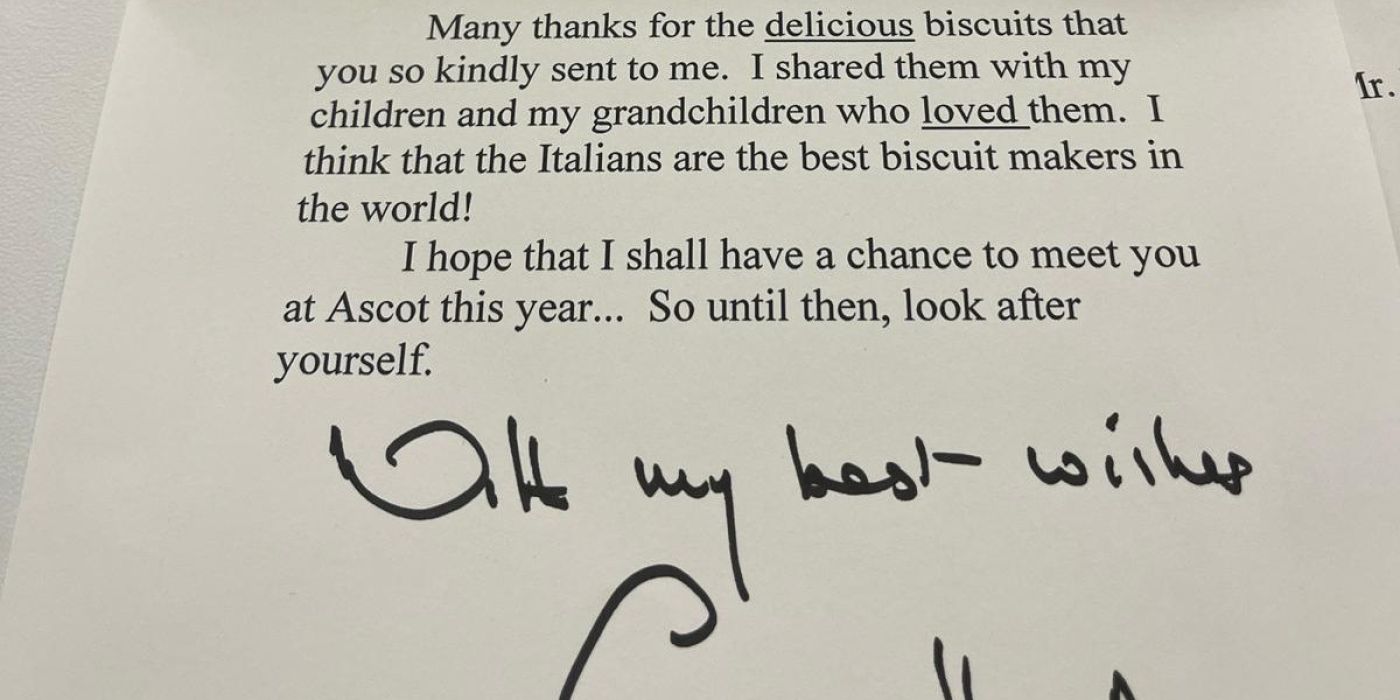 Many thanks for the delicious biscuits that
you so kindly sent to me. I shared them with my
children and my grandchildren who loved them. I
think that the Italians are the best biscuit makers in
the world!
I hope that I shall have a chance to meet you
at Ascot this year... So until then, look after
yourself.
With my best wishes